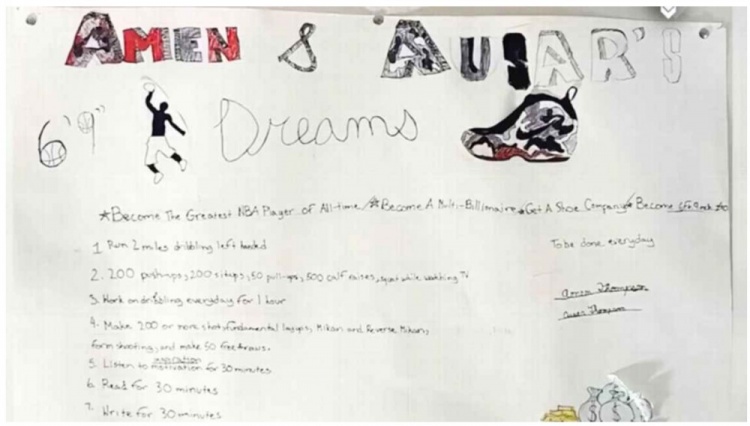 AMEN & AUSAR'S
6'9" Dreams
★Become The Greatest NBA Player of All-time ★Become A Multi-Billionaire ★Get A Shoe Company ★Become 6ft 9inch
1 Run 2 miles dribbling left handed
To be done everyday
2. 200 pushups, 200 situps, 50 pull-ups, 500 calf raises, squat while watching TV
3. Work on dribbling everyday for 1 hour
Amen Thompson
Ausar Thompson
4. Make 200 or more shots, fundamental layups, Mikan and Reverse Mikan,
form shooting, and make 50 freethrows.
5. Listen to motivation for 30 minutes
6. Read for 30 minutes
7. Write for 30 minutes
$ $